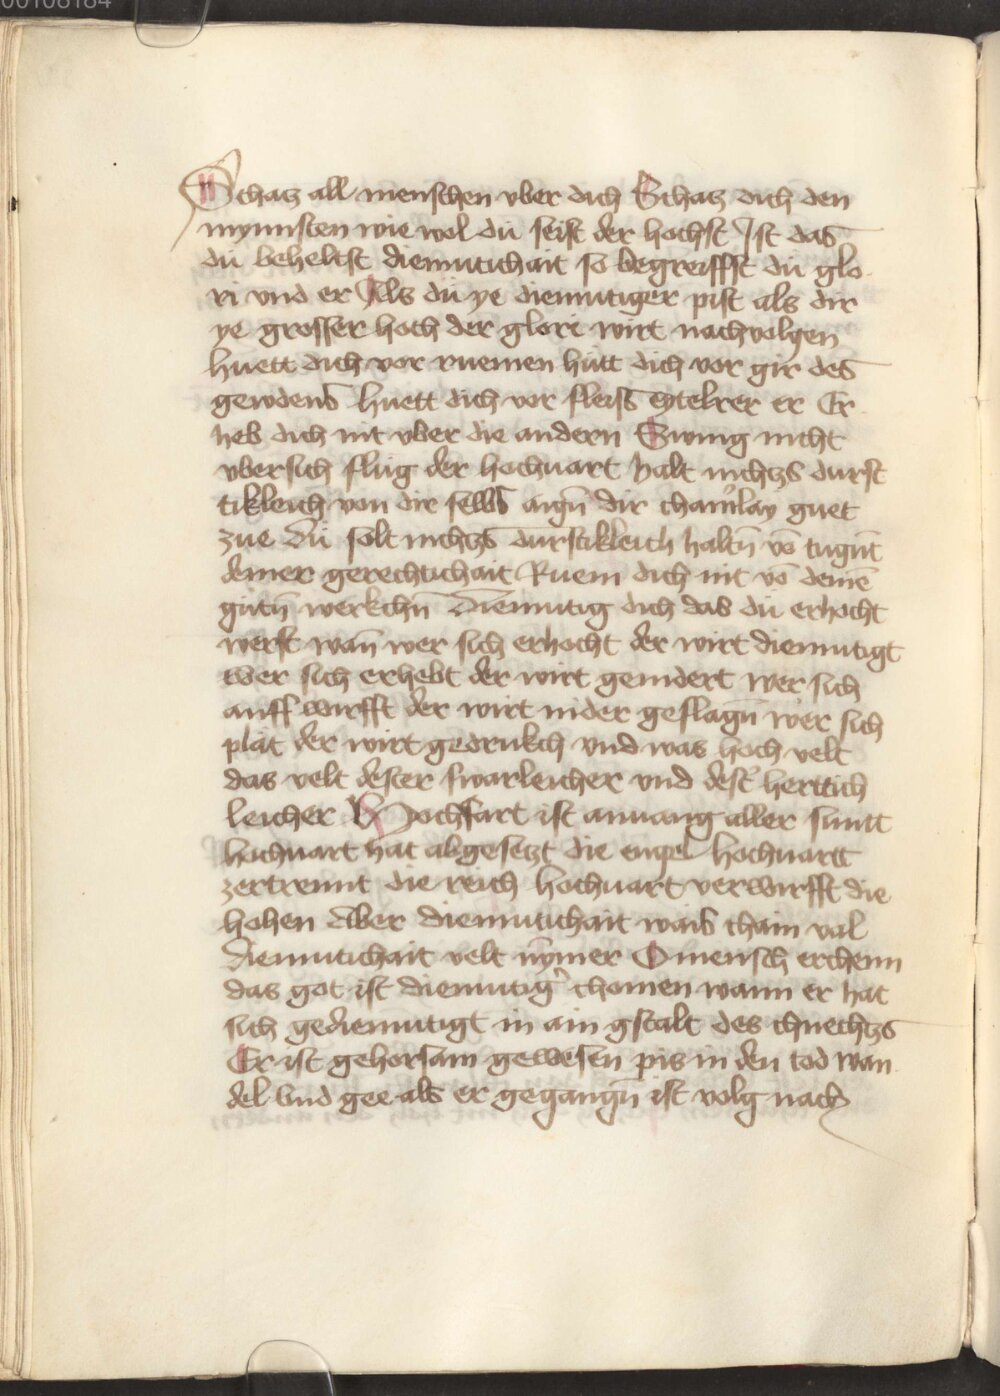 00108184
Schacz all menschen vber dich Schacz dich den
mynnsten wie wol dü seist der hochst Ist das
dü beheltst diemutichait so begreiffst dü glo
ri vnd er Als dü ye diemutiger pist als dir
ye grosser hoch der glori wirt nachvolgen
huett dich vor ruemen hütt dich vor gir des
gewdens huett dich vor fleiss eytelrer er Er
heb dich nit vber die andern Swing nicht
vbersich flüg der hochuart halt nichczs durst
tikleich von dir selbs aign̄ dir chainˀlay guet
zue dü solt nichczs durstikleich haltn̄ vō tugn̄t
deiner gerechtichait Ruem dich nit vō deinē
gütn̄ werkchn̄ Diemutig dich das dü erhocht
werst wan̄ wer sich erhocht der wirt diemutigt
wer sich erhebt der wirt genidert wer sich
auff wirfft der wirt nider geslagn̄ wer sich
plät der wirt gedrukch vnd was hoch velt
das velt dester swarleicher vnd destˀ herttich
leicher Hochfart ist anuang aller sunt
hochuart hat abgesetzt die engel hochuartt
zertrennt die reich hochuart verwirfft die
hohen Aber diemutichait wais chain val
diemutichait velt nȳmer O mensch erchenn
das got ist diemutigˀ chomen wann er hat
sich gediemutigt in ain gstalt des chnechtzs
Er ist gehorsam gewesen pis in den tod wan
del vnd gee als er gegangn̄ ist volg nach